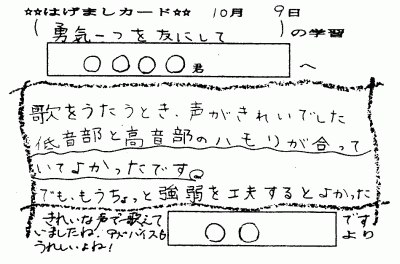 ☆☆はげましカード☆☆ 10月 9日
(勇気一つを友にして)の学習
○○○○君 へ
歌をうたうとき、声がきれいでした
低音部と高音部のハモリが合って
いてよかったです。
でも、もうちょっと強弱を工夫するとよかった
です
○○ より
きれいな声で歌えて
いましたね。アドバイスも
うれしいよね!